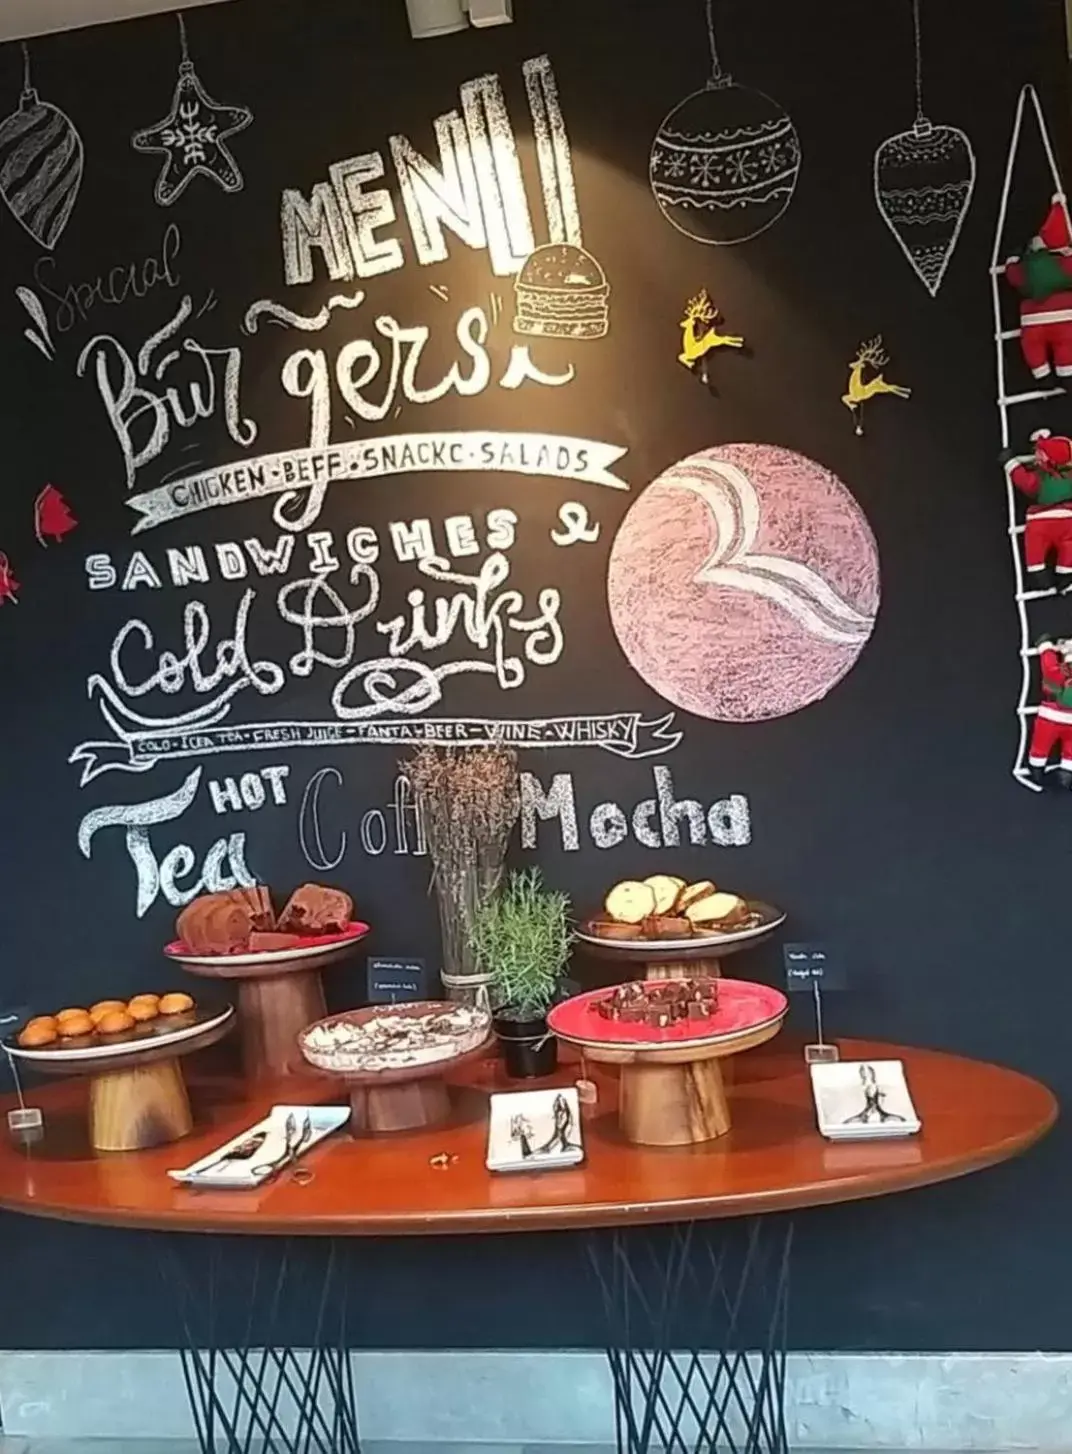 MENU
Special
Burgers
CHICKEN-BEFF.SNACKC-SALADS
SANDWICHES &
Cold Drinks
COLD-ICEA TEA-FRESH JUICE-FANTA-BEER-WINE-WHISKY
HOT
Tea Coff Mocha